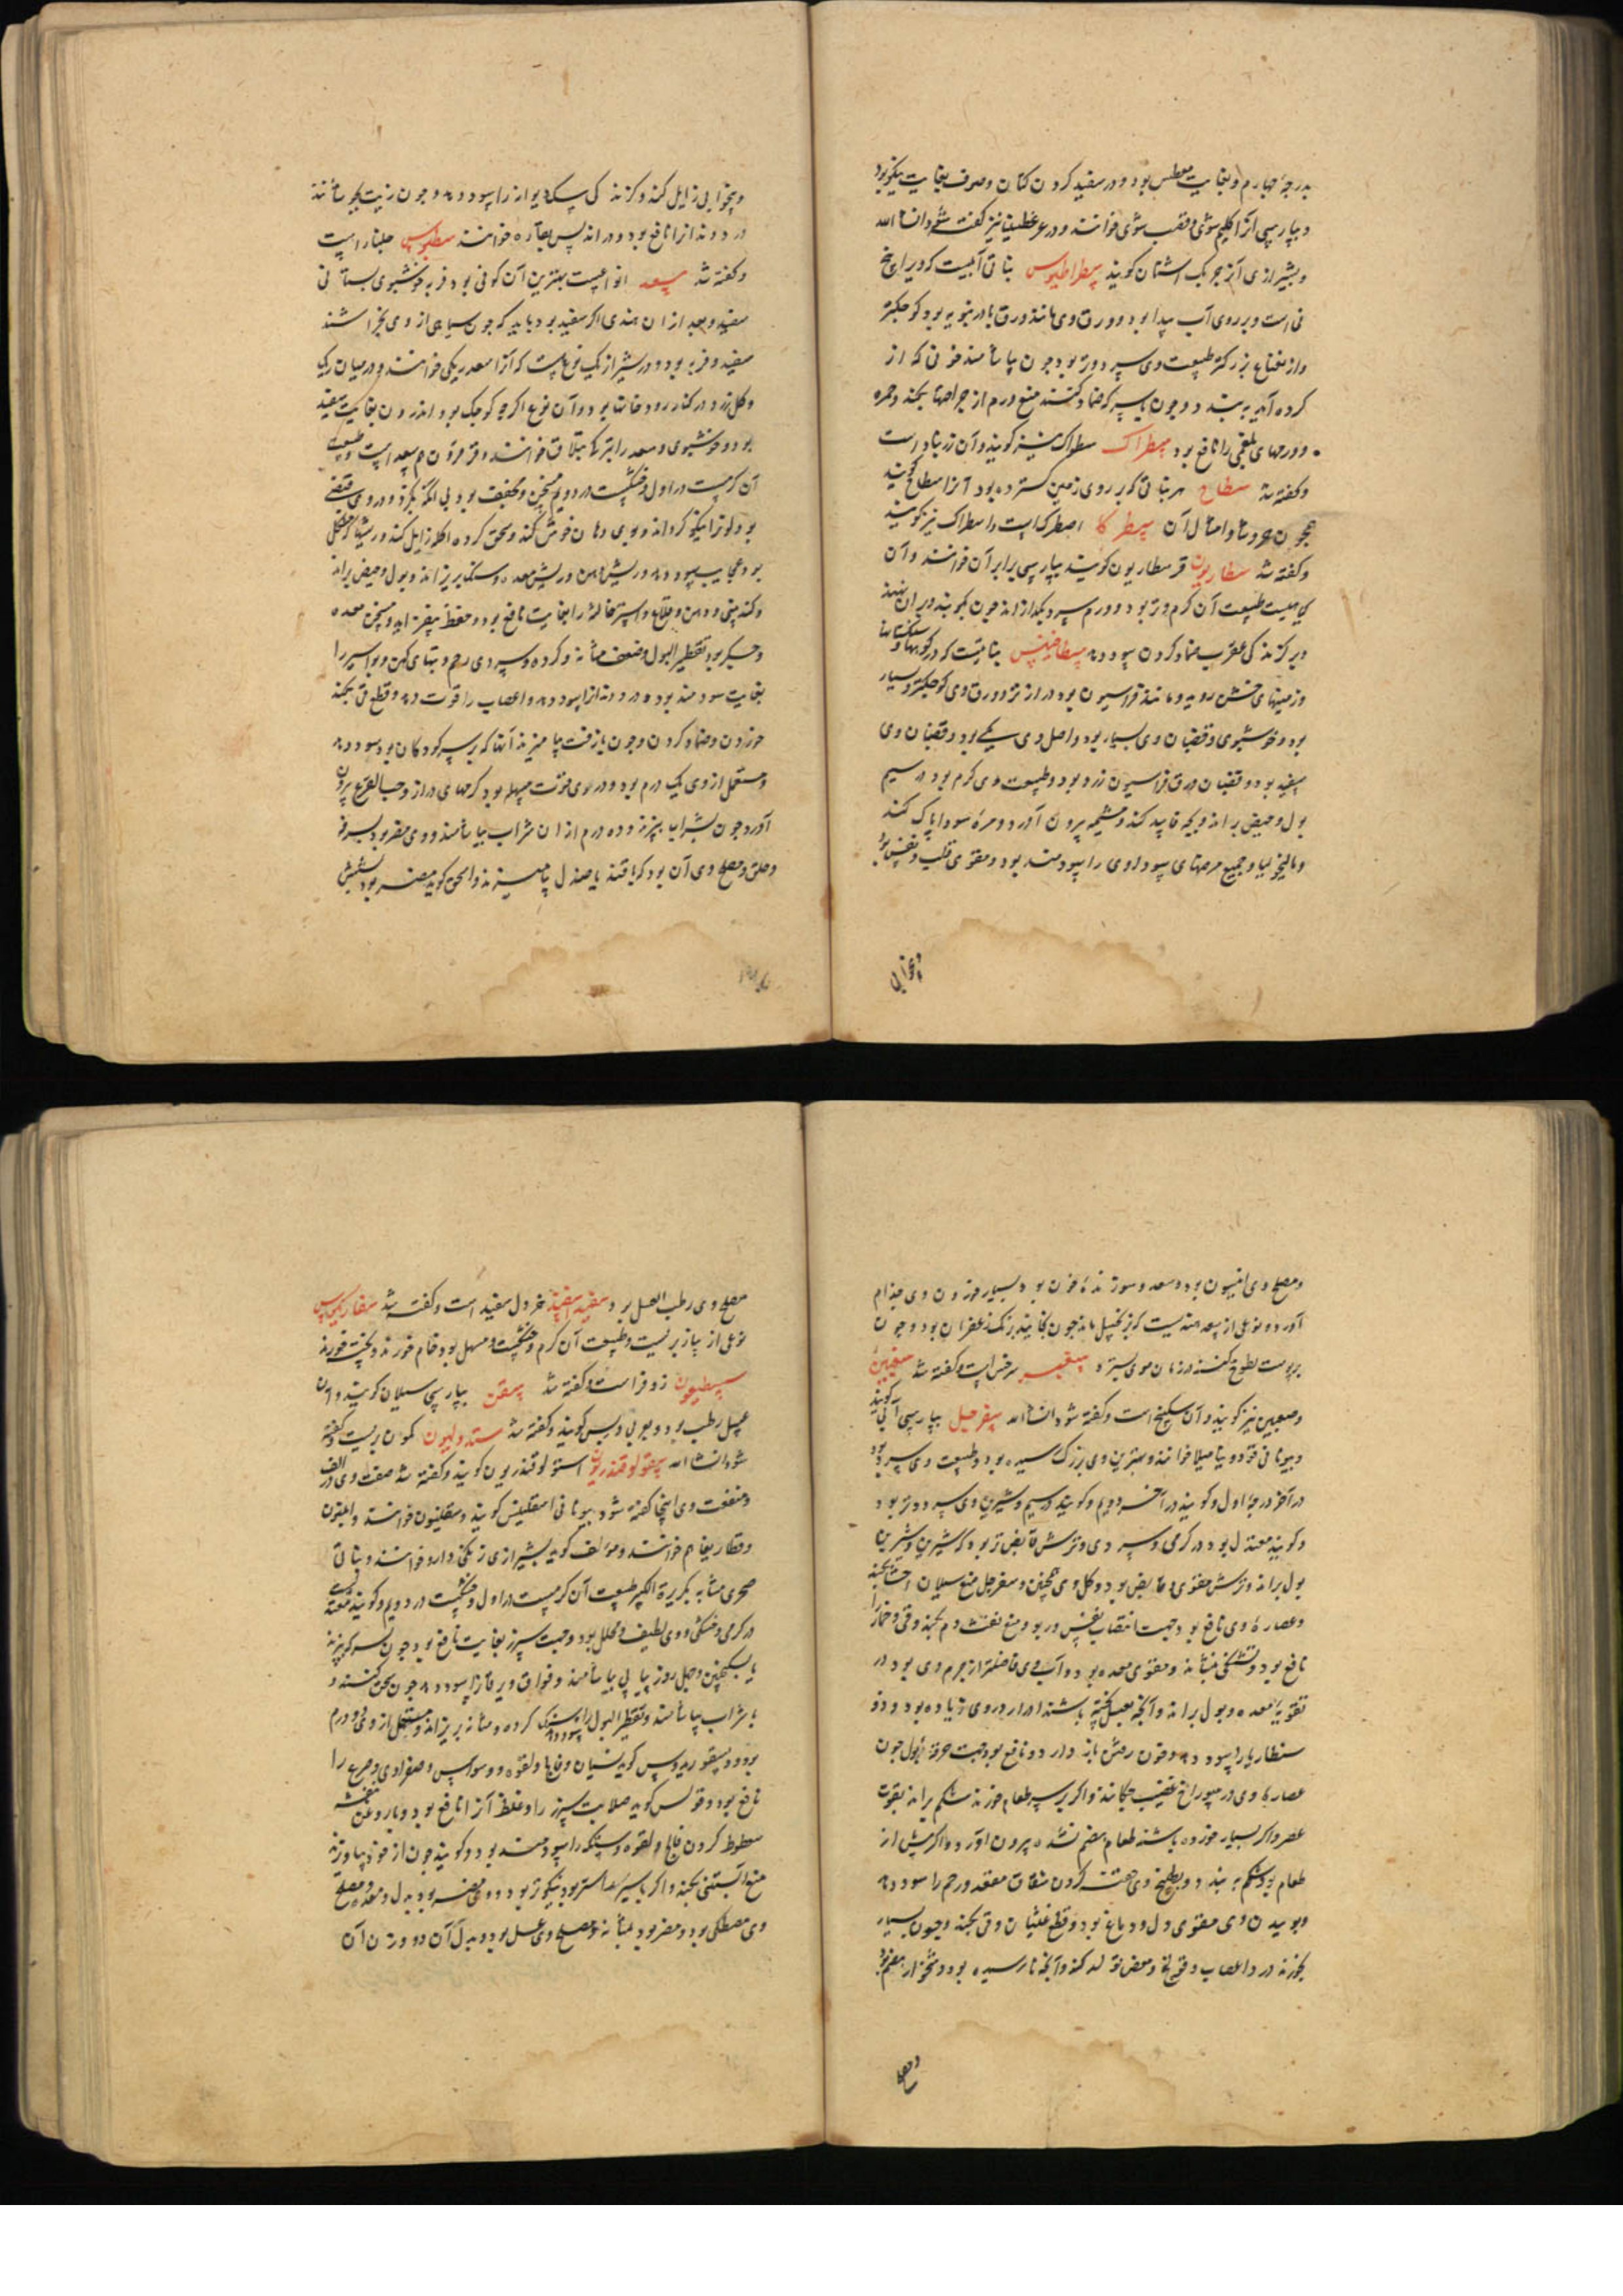 بدرجهٔ چهارم و بغایت معطس بود و در سفید کردن کتان و صرف بغایت نیکو بود
و بپارسی آنرا کلیم شوی و قصب شوی خوانند و در عرطنیثا نیز گفته شود انشاء الله
و بشیرازی آنرا جوبک اشنان گویند سطراطیوس نباتی آبیست که ویرا بیخ
نی است و بر روی آب پیدا بود و ورق وی مانند ورق بادرنجویه بود کوچکتر
و از نعناع بزرکتر طبیعت وی سرد و تر بود چون بیاشامند خونی که از
کرده آید ببندد و چون با سرکه ضماد کنند منع ورم از جراحتها بکند و حمره
و ورمهای بلغمی را نافع بود سطراک سطراک نیز گویند و آن زرنباد است
و گفته شد سطاح هر نباتی که بر روی زمین گسترده بود آنرا سطاح گویند
همچون و امثال آن سطرکا اصطرک است و اسطراک نیز گویند
و گفته شد سطاریون قرسطاریون گویند بپارسی برابر آن خوانند و آن
کیاهیست طبیعت آن گرم و تر بود و ورم سپرد بگدازاند چون بکوبند و بر آن نهند
و بر گزندگی عقرب ضماد کردن سود دهد سطاخینس نباتیست که در کوهها و سنکستانها
و زمینهای خشن روید و مانند فراسیون بود درازتر و ورق وی کوچکتر و بسیار
بود و خوشبوی و قضبان وی بسیار بود و اصل وی یکی بود و قضبان وی
سفید بود و قضبان و ورق فراسیون زرد بود و طبیعت وی گرم بود در سیم
بول و حیض براند و بچه فاسد کند و مشیمه بیرون آورد و مرهٔ سودا پاک کند
و مالیخولیا و جمیع مرضهای سوداوی را سودمند بود و مقوی قلب و نفس بود
و بیخوابی زایل کند و گزندگی سگ دیوانه را سود دهد و چون زیت بیاشامند
درد دندانرا نافع بود و در اندلس بعاره خوانند سطیوس جلنار است
و گفته شد سعد انواعیست بهترین آن کوفی بود فربه خوشبوی بستانی
سفید و بعد از آن هندی اکر سفید بود باید که چون سیاهی از وی بخراشند
سفید و فربه بود و در شیراز یک نوع هست که آنرا سعد ریکی خوانند و در میان ریک
و کل زرد در کنار رودخانها بود و آن نوع اگرچه کوچک بود اندرون بغایت سفید
بود و خوشبوی و سعد را بترکی تبلاق خوانند و قرقرون هم سعد است و طبیعت
آن گرمست در اول و خشکست در دویم مسخن و مجفف بود بی لذع و در وی قبضی
بود لونرا نیکو گرداند و بوی دهان خوش کند و سحق کرده اکله زایل کند و ریشها که
بود عجایب سود دهد و ریش دهن و ریش معده و سنگ بریزاند و بول و حیض براند
و گند بینی و دهن و قلاع و استرخاء لثه را بغایت نافع بود و حفظ بیفزاید و مسخن معده
و جگر بود تقطیر البول و ضعف مثانه و گرده و سردی رحم و تبهای کهن و بواسیر را
بغایت سودمند بود و درد دندانرا سود دهد و اعصاب را قوت دهد و قطع قی بکند
خوردن و ضماد کردن و چون با زفت بیامیزند آنها که بر سر کودکان بود سود دهد
و مستعمل از وی یک درم بود و در وی قوت مسهله بود کرمهای دراز و حب القرع بیرون
آورد چون بشراب بپزند و ده درم از آن شراب بیاشامند و وی مضر بود بسرفه
و حلق و مصلح وی آن بود که با قند یا صندل بیامیزند و اسحق گوید مضر بود بشش
و مصلح وی انیسون بود و سعد و سوزندهٔ خون بود و بسیار خوردن وی جذام
آورد و نوعی از سعد هندیست که بزنجبیل ماند چون بخایند برنک زعفران بود و چون
بر پوست لطوخ کنند در زمان موی بسترد سغبر سرخس است و گفته شد سغبین
و صغبین نیز گویند و آن سکبینج است و گفته شود انشاء الله سفرجل بپارسی آبی گویند
و بیونانی قودونیا میلا خوانند و بهترین وی بزرگ رسیده بود و طبیعت وی سرد بود
در آخر درجهٔ اول و گویند در آخر دویم و گویند در سیم و شیرین وی سرد و تر بود
و گویند معتدل بود در گرمی و سردی و ترش قابض تر بود که شیرین و شیرین
بول براند و ترش مقوی و قابض بود و کل وی همچنین و سفرجل منع سیلان احشا بکند
و عصارهٔ وی نافع بود جهت انتصاب نفس و ربو و منع نفث دم بکند و قی و خمار را
نافع بود و تشنگی بنشاند و مقوی معده بود و آب وی فاضلتر از جرم وی بود در
تقویة معده و بول براند و آنچه بعسل پخته باشند ادرار در وی زیاده بود و دوسنطاریا را سود دهد و خون رفتن باز دارد و نافع بود جهت حرقة البول چون
عصارهٔ وی در سوراخ قضیب چکانند و اگر بر سر طعام خورند شکم براند بقوت
عصر و اگر بسیار خورده باشند طعام هضم نشده بیرون آورد و اگر پیش از
طعام بود شکم ببندد و بطبیخ وی حقنه کردن شقاق مقعد و رحم را سود دهد
و بوییدن وی مقوی دل و دماغ بود و قطع غثیان و قی بکند و چون بسیار
بخورند درد اعصاب و قولنج و مغص تولد کند و آنچه نارسیده بود دشخوار هضم بود
و مصلح
مصلح وی رطب العسل بود سفید اسفید خردل سفید است و گفته شد سفاریکوس
نوعی از پیاز بریست و طبیعت آن گرم و خشکست و مسهل بود خام خورند و پخته خورند
سسطیون زوفراست و گفته شد سقن بپارسی سیلان گویند و آن
عسل رطب بود و بعربی دبس گویند و گفته شد سندولیون کمون بریست و گفته
شود انشاء الله سقولوقندریون اسقولوقندریون گویند و گفته شد صفت وی در الف
و منفعت وی اینجا گفته شود بیونانی اسقلبیس گویند و سقلنیون خوانند و ابلیون
و قطاریغا هم خوانند و مؤلف گوید بشیرازی زنگی دارو خوانند و نباتی
صخری مشابه بکریرة الکبر طبیعت آن گرمست در اول و خشکست در دویم و گویند معتدلست
در گرمی و خشکی و وی لطیف و محلل بود و جهت سپرز بغایت نافع بود چون بسرکه بپزند
با سکنجبین و چهل روز پیاپی بیاشامند و فواق و یرقانرا سود دهد چون سحق کنند و
با شراب بیاشامند و تقطیر البول را سود دهد و سنگ گرده و مثانه بریزاند و مستعمل از وی دو درم
بود و دیسقوریدوس گوید نسیان و فالج و لقوه و وسواس و صفراوی و صرع را
نافع بود و قولس گوید صلابت سپرز را و غلظ آنرا نافع بود و با روغن بنفشه
سعوط کردن فالج و لقوه و سکته را سودمند بود و گویند چون از خود بیاویزند
منع آبستنی بکند و اگر با سپرز استر بود نیکوتر بود و وی مضر بود بدل و معده و مصلح
وی مصطکی بود و مضر بود بمثانه و مصلح وی عسل بود و بدل آن دو وزن آن